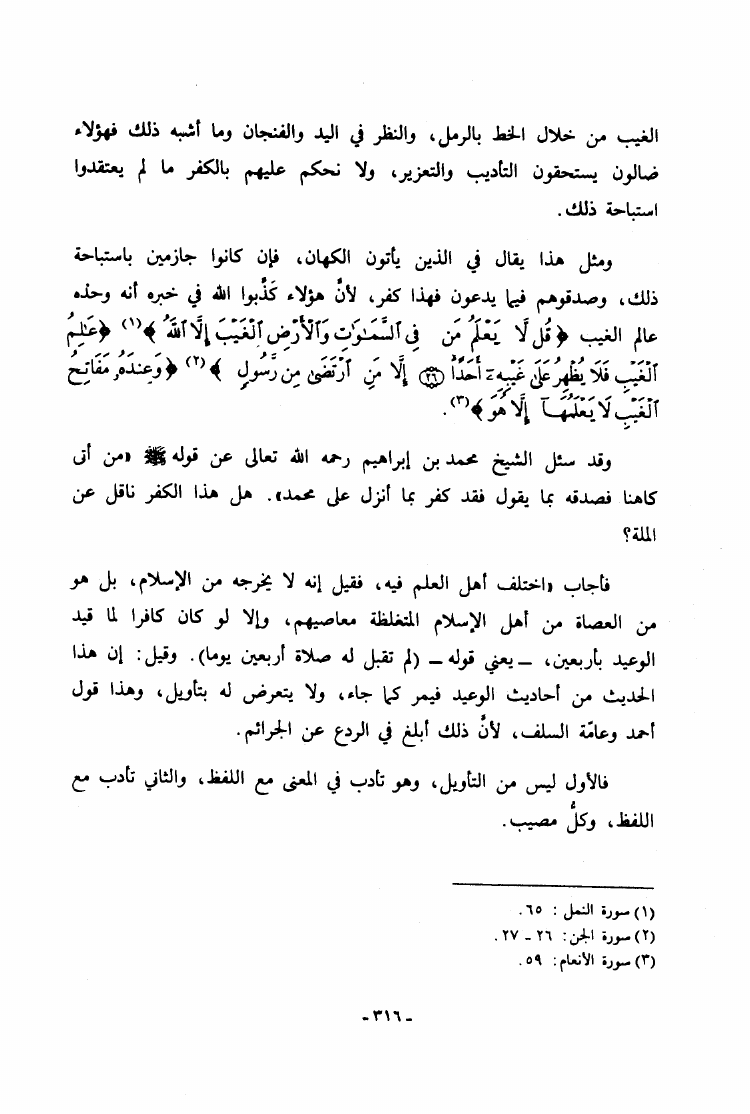 الغيب من خلال الخط بالرمل، والنظر في اليد والفنجان وما أشبه ذلك فهؤلاء
ضالون يستحقون التأديب والتعزير، ولا نحكم عليهم بالكفر ما لم يعتقدوا
استباحة ذلك.
ومثل هذا يقال في الذين يأتون الكهان، فإن كانوا جازمين باستباحة
ذلك، وصدقوهم فيما يدعون فهذا كفر، لأنَّ هؤلاء كَذَّبوا الله في خبره أنه وحده
عالم الغيب ﴿قُل لَّا يَعْلَمُ مَن فِى ٱلسَّمَٰوَٰتِ وَٱلْأَرْضِ ٱلْغَيْبَ إِلَّا ٱللَّهُ﴾(١) ﴿عَٰلِمُ
ٱلْغَيْبِ فَلَا يُظْهِرُ عَلَىٰ غَيْبِهِۦٓ أَحَدًا ۝٢٦ إِلَّا مَنِ ٱرْتَضَىٰ مِن رَّسُولٍ﴾(٢) ﴿وَعِندَهُۥ مَفَاتِحُ
ٱلْغَيْبِ لَا يَعْلَمُهَآ إِلَّا هُوَ﴾(٣).
وقد سئل الشيخ محمد بن إبراهيم رحمه الله تعالى عن قوله ﷺ «من أتى
كاهنا فصدقه بما يقول فقد كفر بما أنزل على محمد». هل هذا الكفر ناقل عن
الملة؟
فأجاب «اختلف أهل العلم فيه، فقيل إنه لا يخرجه من الإسلام، بل هو
من العصاة من أهل الإسلام المتغلظة معاصيهم، وإلا لو كان كافرا لما قيد
الوعيد بأربعين، ـ يعني قوله ـ (لم تقبل له صلاة أربعين يوما). وقيل: إن هذا
الحديث من أحاديث الوعيد فيمر كما جاء، ولا يتعرض له بتأويل، وهذا قول
أحمد وعامّة السلف، لأنَّ ذلك أبلغ في الردع عن الجرائم.
فالأول ليس من التأويل، وهو تأدب في المعنى مع اللفظ، والثاني تأدب مع
اللفظ، وكلٌّ مصيب.
(١) سورة النمل: ٦٥.
(٢) سورة الجن: ٢٦ ـ ٢٧.
(٣) سورة الأنعام: ٥٩.
ـ ٣١٦ ـ